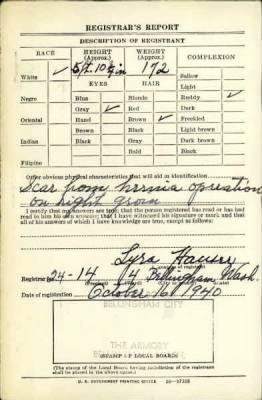 REGISTRAR'S REPORT
DESCRIPTION OF REGISTRANT
RACE HEIGHT (Approx.) WEIGHT (Approx.) COMPLEXION
White ✓ 5 ft. 10½ in 172 Sallow
EYES HAIR Light
Negro Blue Blonde Ruddy ✓
Gray ✓ Red Dark
Oriental Hazel Brown ✓ Freckled
Brown Black Light brown
Indian Black Gray Dark brown
Bald Black
Filipino
Other obvious physical characteristics that will aid in identification
Scar from hernia operation
on right groin
I certify that my answers are true; that the person registered has read or has had
read to him his own answers; that I have witnessed his signature or mark and that
all of his answers of which I have knowledge are true, except as follows:
Lyra Hauser
Registrar for 24-14 4 Bellingham Wash.
Date of registration October 16 1940
BELLINGHAM CITY
THE ARMORY
(STAMP OF LOCAL BOARD)
(The stamp of the Local Board having jurisdiction of the registrant shall be
placed in the above space.)
U. S. GOVERNMENT PRINTING OFFICE